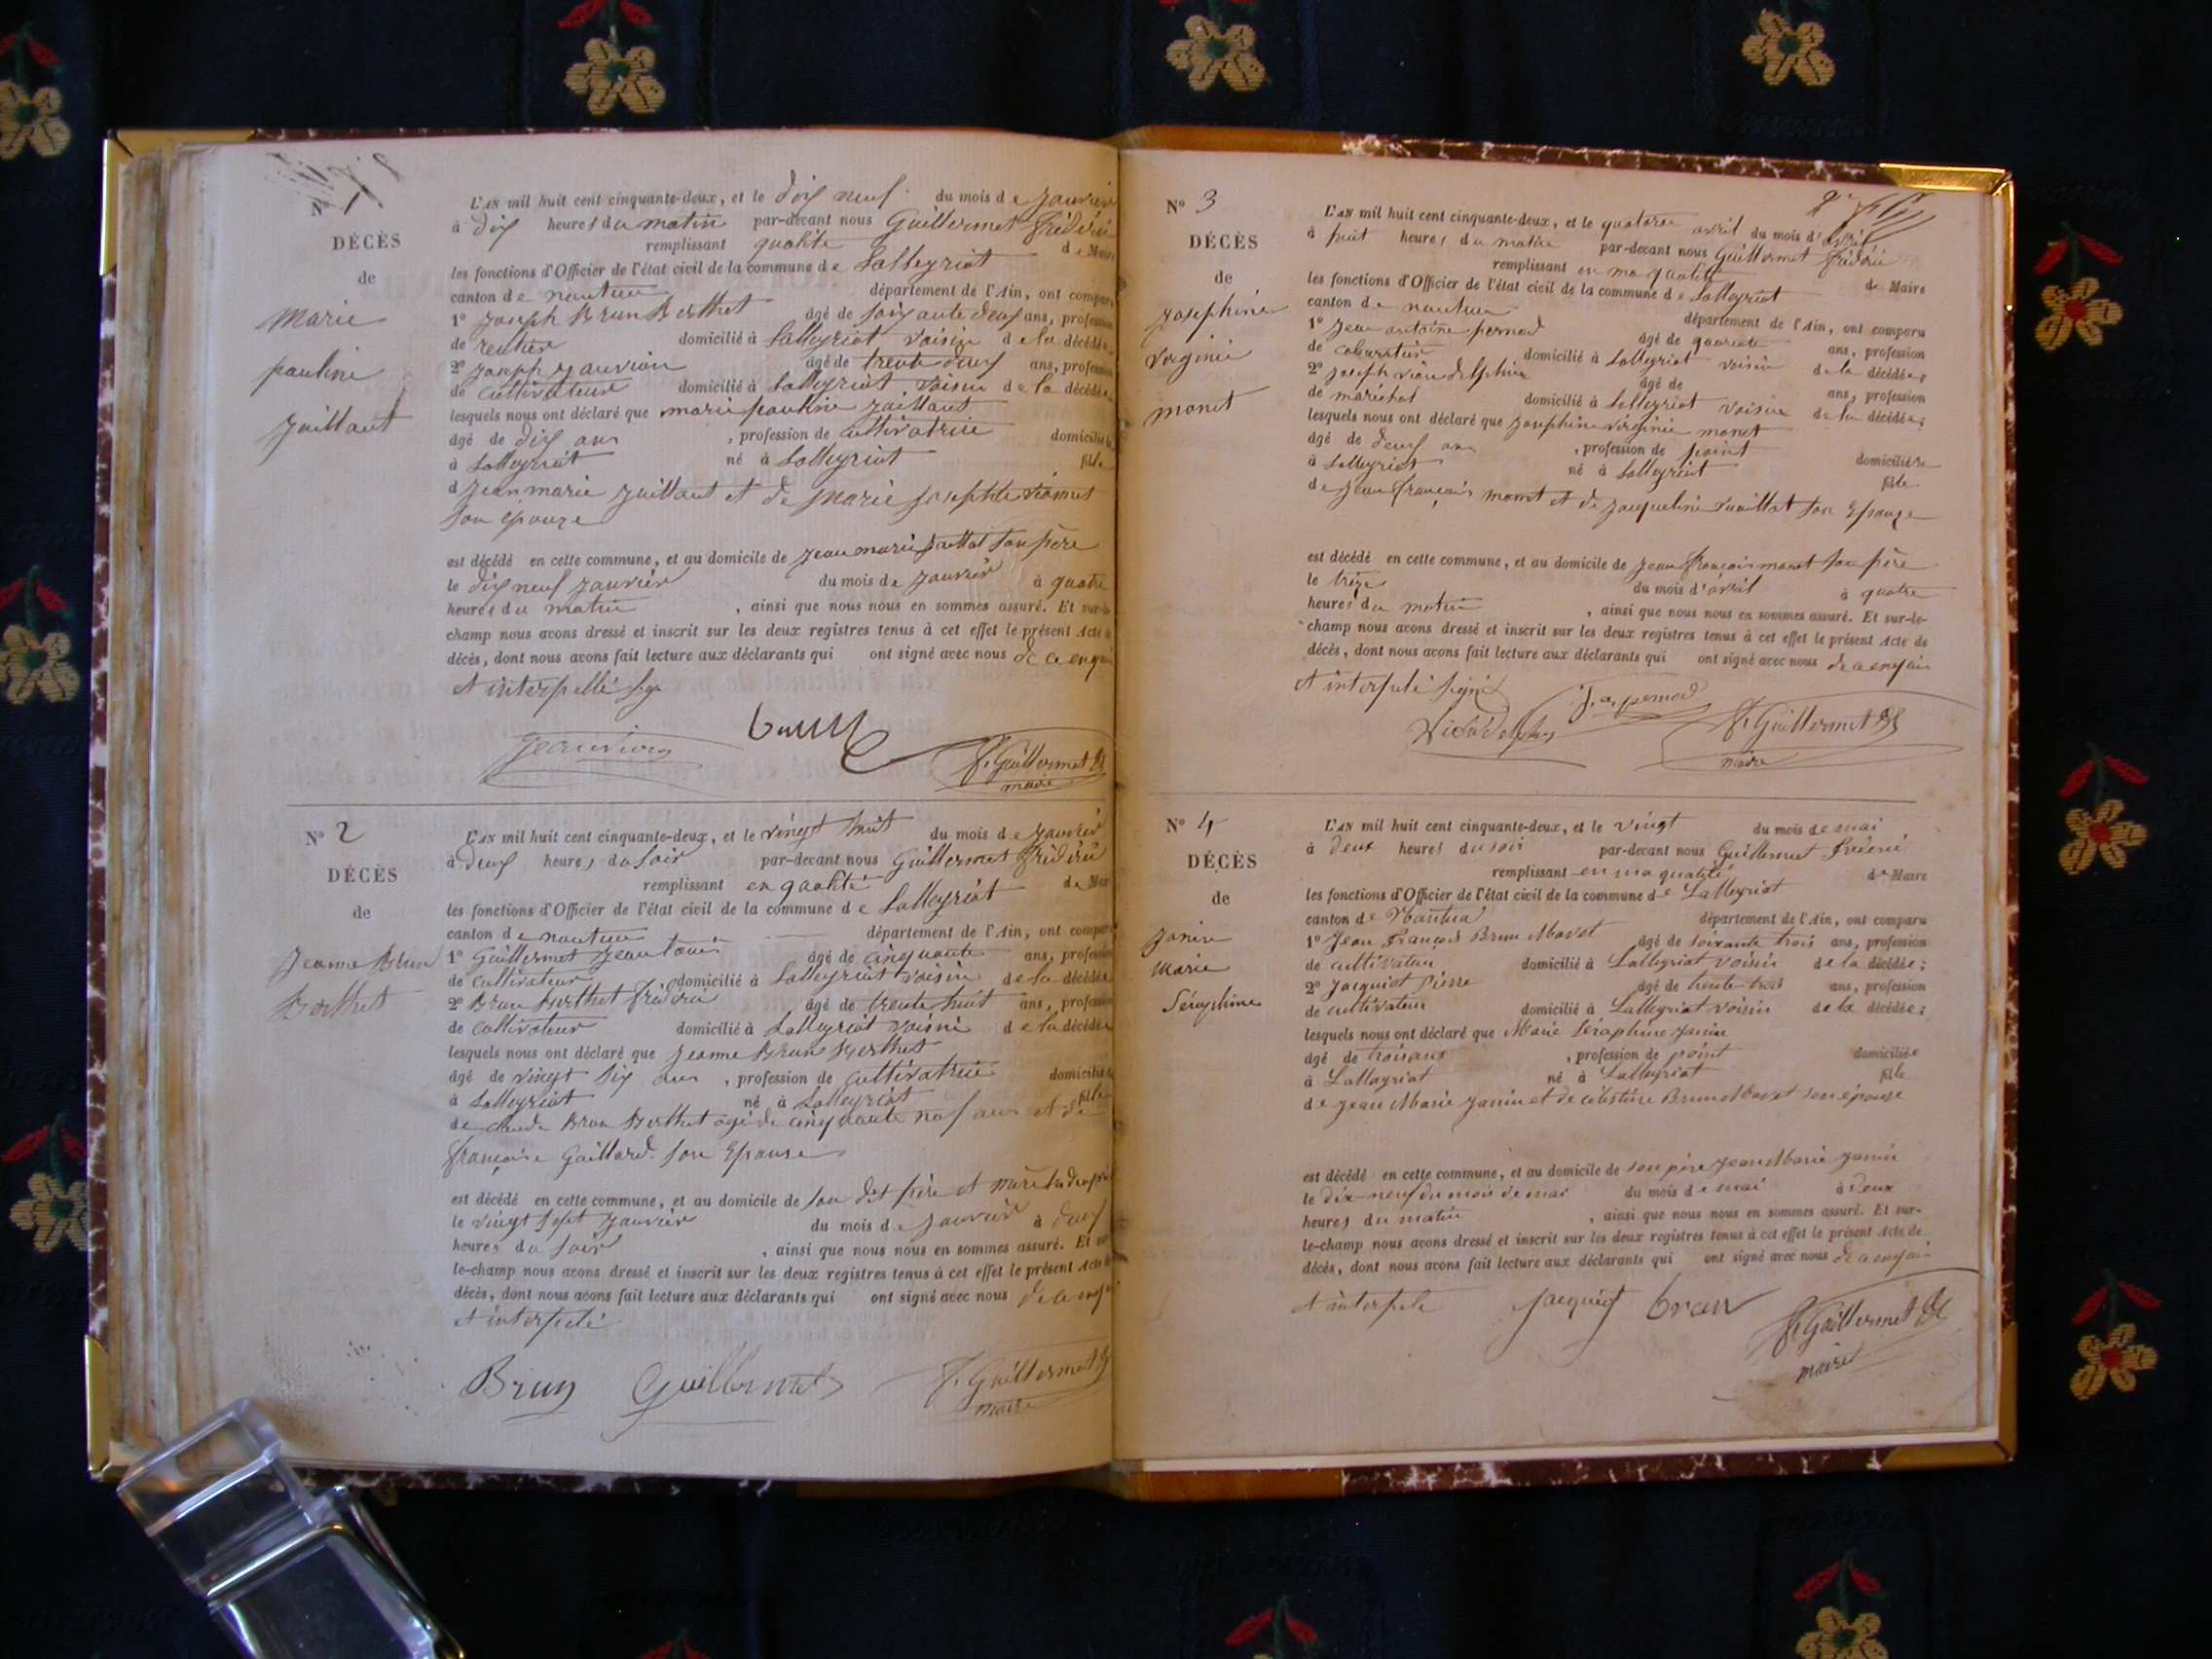 N° 1
DÉCÈS
de
Marie
pauline
Jaillant
L'AN mil huit cent cinquante-deux, et le dix neuf du mois de janvier
à dix heures du matin par-devant nous Guillermet frédéric
remplissant qualité de Maire
les fonctions d'Officier de l'état civil de la commune de Lalleyriat
canton de nantua département de l'Ain, ont comparu
1° Joseph Brun Berthet âgé de soixante deux ans, profession
de rentier domicilié à Lalleyriat voisin de la décédée
2° Joseph âgé de trente deux ans, profession
de cultivateur domicilié à Lalleyriat voisin de la décédée
lesquels nous ont déclaré que marie pauline jaillant
âgé de dix ans , profession de cultivatrice domiciliée
à Lalleyriat né à Lalleyriat fille
d jean marie jaillant et de marie josephte
son épouse
est décédé en cette commune, et au domicile de jean marie son père
le dix neuf janvier du mois de janvier à quatre
heures du matin , ainsi que nous nous en sommes assuré. Et sur-le-
champ nous avons dressé et inscrit sur les deux registres tenus à cet effet le présent Acte de
décès, dont nous avons fait lecture aux déclarants qui ont signé avec nous de ce enquis
et interpellé
F. Guillermet
maire
N° 2
DÉCÈS
de
Jeanne Brun
Berthet
L'AN mil huit cent cinquante-deux, et le vingt huit du mois de janvier
à deux heures du soir par-devant nous Guillermet frédéric
remplissant en qualité de Maire
les fonctions d'Officier de l'état civil de la commune de Lalleyriat
canton de nantua département de l'Ain, ont comparu
1° Guillermet jean louis âgé de cinquante ans, profession
de cultivateur domicilié à Lalleyriat voisin de la décédée
2° Brun Berthet frédéric âgé de trente huit ans, profession
de cultivateur domicilié à Lalleyriat voisin de la décédée
lesquels nous ont déclaré que jeanne Brun Berthet
âgé de vingt six ans , profession de cultivatrice domiciliée
à Lalleyriat né à Lalleyriat fille
de claude Brun Berthet agé de cinquante neuf ans et de
françoise Gaillard son Epouse
est décédé en cette commune, et au domicile de son père et mère
le vingt sept janvier du mois de janvier à deux
heures du soir , ainsi que nous nous en sommes assuré. Et sur-
le-champ nous avons dressé et inscrit sur les deux registres tenus à cet effet le présent Acte de
décès, dont nous avons fait lecture aux déclarants qui ont signé avec nous de ce enquis
et interpelé
Brun Guillermet F. Guillermet
maire
N° 3
DÉCÈS
de
Josephine
Virginie
monet
L'AN mil huit cent cinquante-deux, et le quatorze avril du mois d'avril
à huit heures du matin par-devant nous Guillermet frédéric
remplissant en ma qualité de Maire
les fonctions d'Officier de l'état civil de la commune de Lalleyriat
canton de nantua département de l'Ain, ont comparu
1° Jean antoine pernod âgé de quarante ans, profession
de cabaretier domicilié à Lalleyriat voisin de la décédée;
2° joseph delphin âgé de ans, profession
de maréchal domicilié à Lalleyriat voisin de la décédée;
lesquels nous ont déclaré que josephine virginie monet
âgé de deux ans , profession de point domiciliée
à Lalleyriat né à Lalleyriat fille
de jean françois monet et de jacqueline son Epouse
est décédé en cette commune, et au domicile de jean françois monet son père
le treize du mois d'avril à quatre
heures du matin , ainsi que nous nous en sommes assuré. Et sur-le-
champ nous avons dressé et inscrit sur les deux registres tenus à cet effet le présent Acte de
décès, dont nous avons fait lecture aux déclarants qui ont signé avec nous de ce enquis
et interpelé signé
J. a. pernod
F. Guillermet
maire
N° 4
DÉCÈS
de
Janin
Marie
Séraphine
L'AN mil huit cent cinquante-deux, et le vingt du mois de mai
à deux heures du soir par-devant nous Guillermet fréderic
remplissant en ma qualité de Maire
les fonctions d'Officier de l'état civil de la commune de Lalleyriat
canton de Nantua département de l'Ain, ont comparu
1° Jean François Brun Mavet âgé de soixante trois ans, profession
de cultivateur domicilié à Lalleyriat voisin de la décédée;
2° Jacquiot Pierre âgé de trente trois ans, profession
de cultivateur domicilié à Lalleyriat voisin de la décédée;
lesquels nous ont déclaré que Marie Séraphine Janin
âgé de trois ans , profession de point domiciliée
à Lalleyriat né à Lalleyriat fille
de Jean Marie Janin et de célestine Brun Mavet son épouse
est décédé en cette commune, et au domicile de son père Jean Marie Janin
le dix-neuf du mois de mai du mois de mai à deux
heures du matin , ainsi que nous nous en sommes assuré. Et sur-
le-champ nous avons dressé et inscrit sur les deux registres tenus à cet effet le présent Acte de
décès, dont nous avons fait lecture aux déclarants qui ont signé avec nous de ce enquis
et interpele Jacquiot brun F. Guillermet
maire